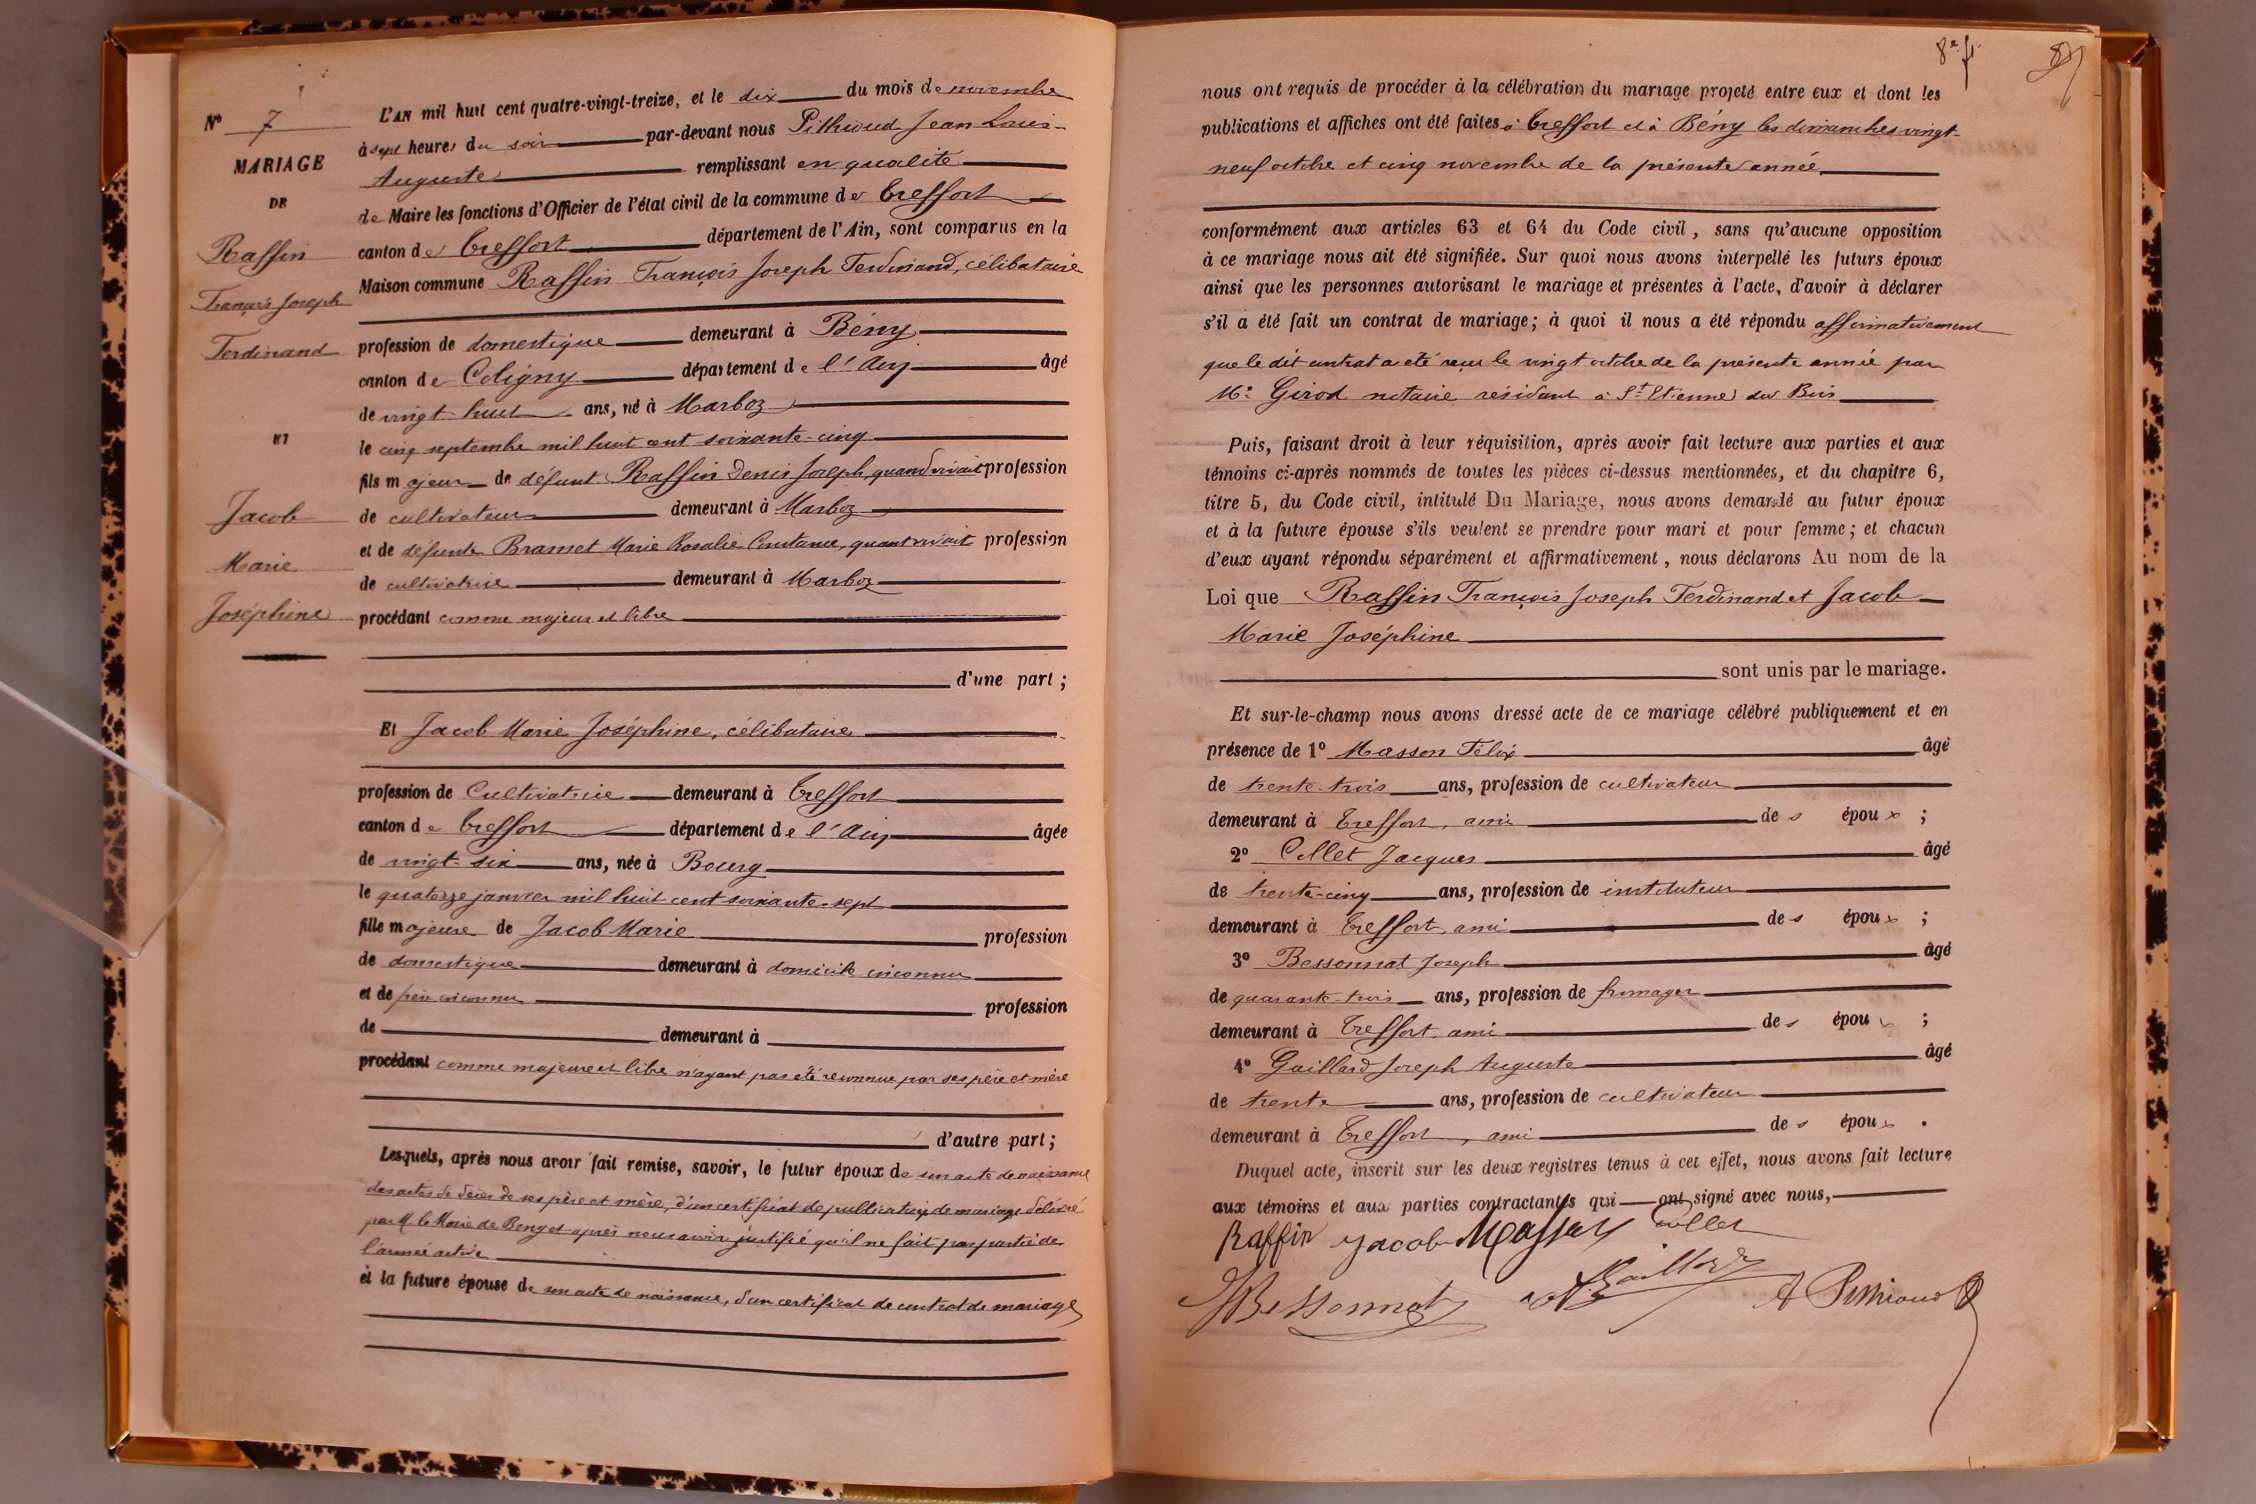 N° 7
MARIAGE
DE
Raffin
François Joseph
Ferdinand
ET
Jacob
Marie
Joséphine
L'AN mil huit cent quatre-vingt-treize, et le dix du mois de novembre
à sept heures du soir par-devant nous Pithioud Jean Louis
Auguste remplissant en qualité
de Maire les fonctions d'Officier de l'état civil de la commune de Treffort
canton de Treffort département de l'Ain, sont comparus en la
Maison commune Raffin François Joseph Ferdinand, célibataire
profession de domestique demeurant à Bény
canton de Coligny département de l'Ain âgé
de vingt-huit ans, né à Marboz
le cinq septembre mil huit cent soixante-cinq
fils majeur de défunt Raffin Denis Joseph, quand vivait profession
de cultivateur demeurant à Marboz
et de défunte Marie Rosalie Constance, quant vivait profession
de cultivatrice demeurant à Marboz
procédant comme majeur et libre
d'une part ;
Et Jacob Marie Joséphine, célibataire
profession de Cultivatrice demeurant à Treffort
canton de Treffort département de l'Ain âgée
de vingt-six ans, née à Bourg
le quatorze janvier mil huit cent soixante-sept
fille majeure de Jacob Marie profession
de domestique demeurant à domicile inconnu
et de père inconnu profession
de demeurant à
procédant comme majeure et libre n'ayant pas été reconnue par ses père et mère
d'autre part ;
Lesquels, après nous avoir fait remise, savoir, le futur époux de son acte de naissance
des actes de décès de ses père et mère, d'un certificat de publication de mariage délivré
par M. le Maire de Beny et après nous avoir justifié qu'il ne fait pas partie de
l'armée active
et la future épouse de son acte de naissance, d'un certificat de contrat de mariage
8e ft
nous ont requis de procéder à la célébration du mariage projeté entre eux et dont les
publications et affiches ont été faites à Treffort et à Bény les dimanches vingt-
neuf octobre et cinq novembre de la présente année
conformément aux articles 63 et 64 du Code civil, sans qu'aucune opposition
à ce mariage nous ait été signifiée. Sur quoi nous avons interpellé les futurs époux
ainsi que les personnes autorisant le mariage et présentes à l'acte, d'avoir à déclarer
s'il a été fait un contrat de mariage ; à quoi il nous a été répondu affirmativement
que le dit contrat a été reçu le vingt octobre de la présente année par
Me Girod notaire résidant à St Etienne du Bois
Puis, faisant droit à leur réquisition, après avoir fait lecture aux parties et aux
témoins ci-après nommés de toutes les pièces ci-dessus mentionnées, et du chapitre 6,
titre 5, du Code civil, intitulé Du Mariage, nous avons demandé au futur époux
et à la future épouse s'ils veulent se prendre pour mari et pour femme ; et chacun
d'eux ayant répondu séparément et affirmativement, nous déclarons Au nom de la
Loi que Raffin François Joseph Ferdinand et Jacob
Marie Joséphine
sont unis par le mariage.
Et sur-le-champ nous avons dressé acte de ce mariage célébré publiquement et en
présence de 1° Masson Félix âgé
de trente-trois ans, profession de cultivateur
demeurant à Treffort, ami des époux ;
2° Collet Jacques âgé
de trente-cinq ans, profession de instituteur
demeurant à Treffort, ami des époux ;
3° Bessonnat Joseph âgé
de quarante-trois ans, profession de fromager
demeurant à Treffort, ami des époux ;
4° Gaillard Joseph Auguste âgé
de trente ans, profession de cultivateur
demeurant à Treffort, ami des époux .
Duquel acte, inscrit sur les deux registres tenus à cet effet, nous avons fait lecture
aux témoins et aux parties contractantes qui ont signé avec nous,
Raffin Jacob Masson Collet
J Bessonnat Gaillard A Pithioud